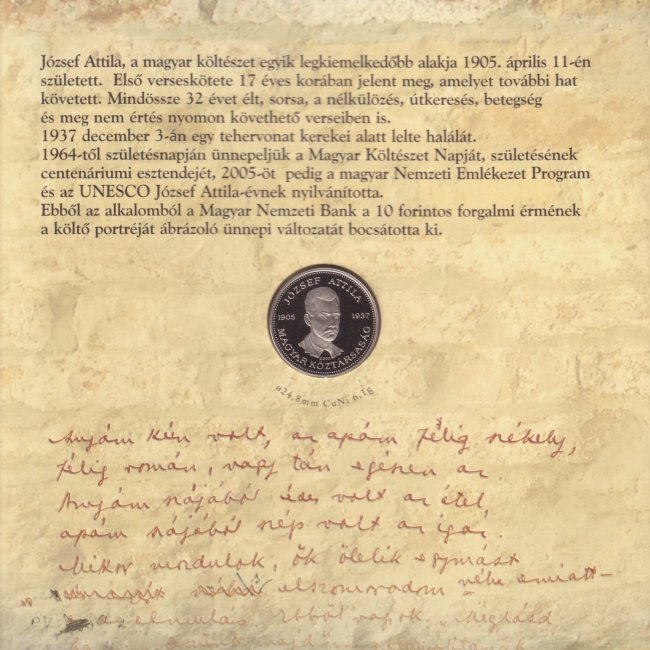 József Attila, a magyar költészet egyik legkiemelkedőbb alakja 1905. április 11-én
született. Első verseskötete 17 éves korában jelent meg, amelyet további hat
követett. Mindössze 32 évet élt, sorsa, a nélkülözés, útkeresés, betegség
és meg nem értés nyomon követhető verseiben is.
1937 december 3-án egy tehervonat kerekei alatt lelte halálát.
1964-től születésnapján ünnepeljük a Magyar Költészet Napját, születésének
centenáriumi esztendejét, 2005-öt pedig a magyar Nemzeti Emlékezet Program
és az UNESCO József Attila-évnek nyilvánította.
Ebből az alkalomból a Magyar Nemzeti Bank a 10 forintos forgalmi érmének
a költő portréját ábrázoló ünnepi változatát bocsátotta ki.
JÓZSEF ATTILA
1905 1937
2005
MAGYAR KÖZTÁRSASÁG
ø24,8mm CuNi 6,1g
Anyám kún volt, az apám félig székely,
félig román, vagy tán egészen az.
Anyám szájából édes volt az étel,
apám szájából szép volt az igaz.
Mikor mozdulok, ők ölelik egymást
elszomorodom néha emiatt –
ez az elmulás. Ebből vagyok. „Meglásd